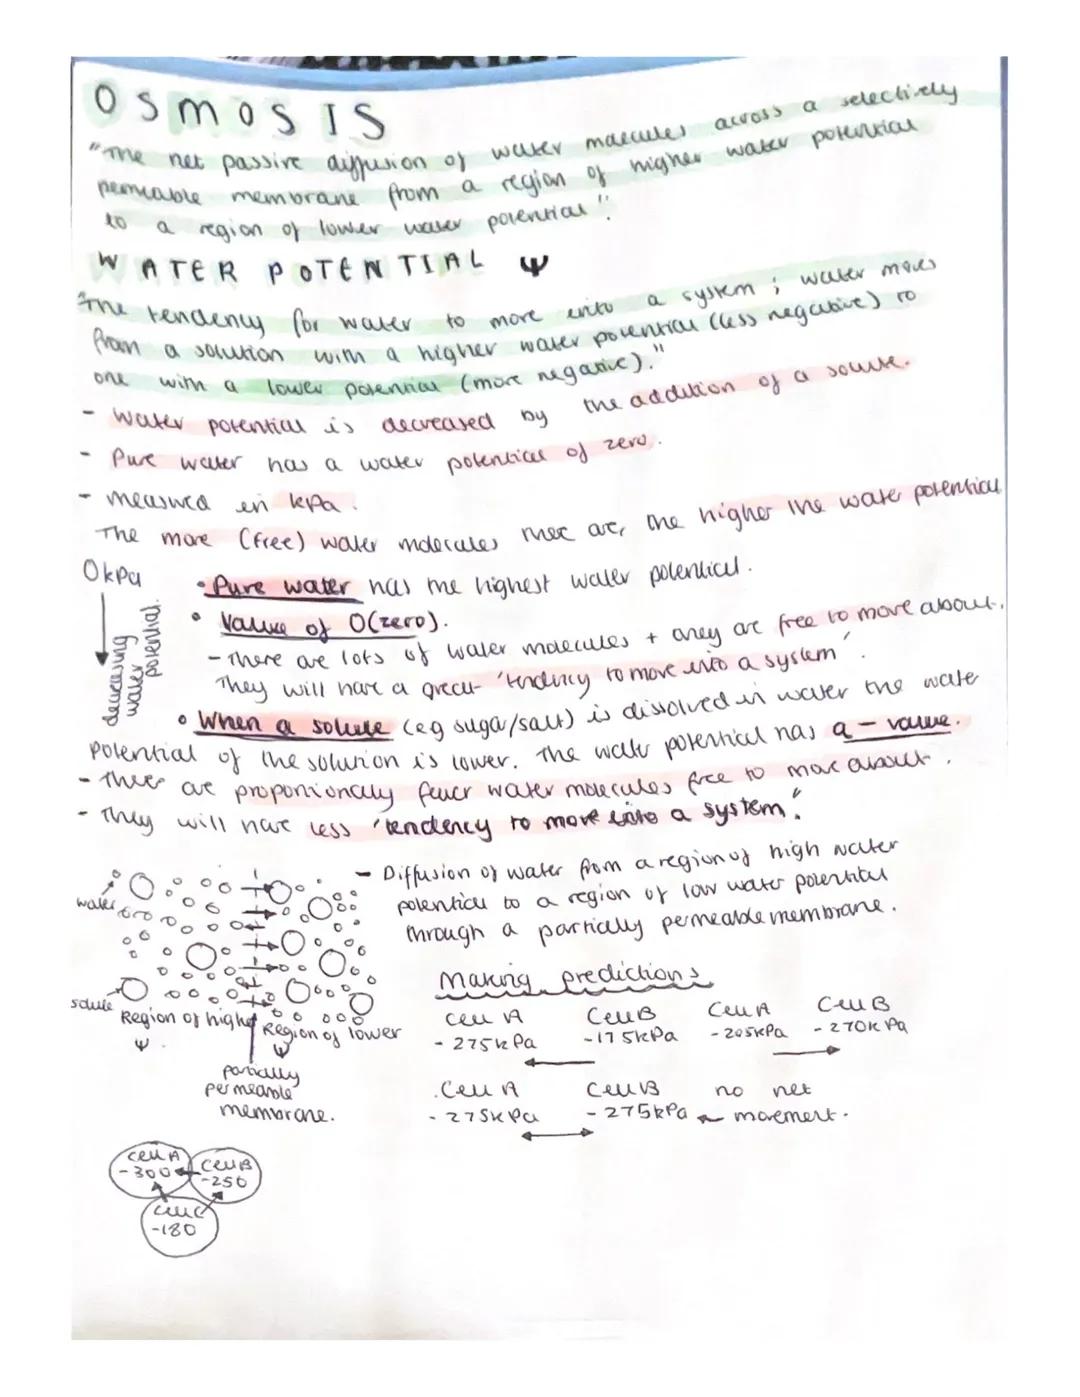 OSMOSIS
"The net passive diffusion of water molecules across a selectively
permeable membrane from a region of higher water potential
to a region of lower water potential".
WATER POTENTIAL Ψ
"The tendency for water to move into a system; water moves
from a solution with a higher water potential (less negative) to
one with a lower potential (more negative)."
- Water potential is decreased by the addition of a solute.
- Pure water has a water potential of zero.
- measured in kPa.
The more (free) water molecules there are, the higher the water potential
0kPa
decreasing
water
potential.
• Pure water has the highest water potential.
• Value of 0(zero).
- There are lots of water molecules + they are free to move about.
They will have a great 'tendency to move into a system'.
• When a solute (eg sugar/salt) is dissolved in water the water
potential of the solution is lower. The water potential has a - value.
- There are proportionally fewer water molecules free to move about.
- They will have less 'tendency to move into a system.'
water
solute
Region of higher
Ψ.
Region of lower
Ψ
partially
permeable
membrane.
- Diffusion of water from a region of high water
potential to a region of low water potential
through a partially permeable membrane.
Making predictions
Cell A Cell B Cell A Cell B
- 275kPa -175kPa -205kPa - 270kPa
.Cell A Cell B no net
- 275kPa - 275kPa movement.
Cell A
-300
Cell B
-250
Cell C
-180